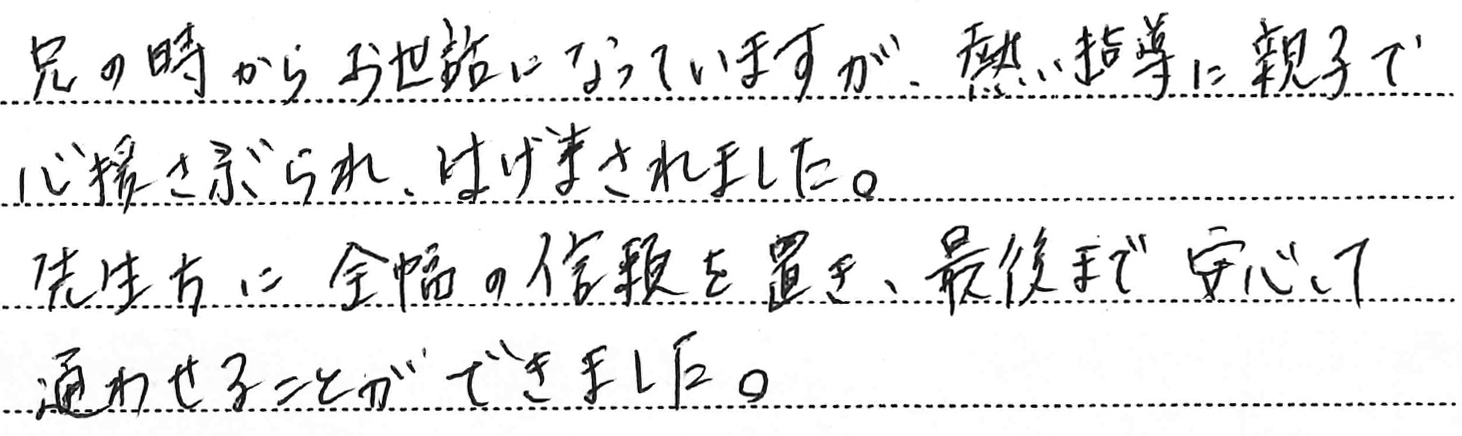 兄の時からお世話になっていますが、熱い指導に親子で
心揺さぶられ、はげまされました。
先生方に全幅の信頼を置き、最後まで安心して
通わせることができました。